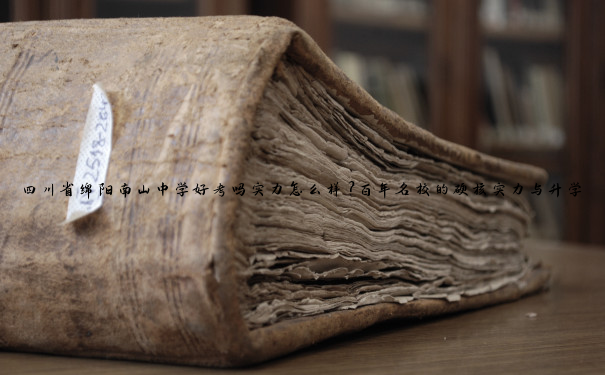 四川省绵阳南山中学好考吗实力怎么样?百年名校的硬核实力与升学